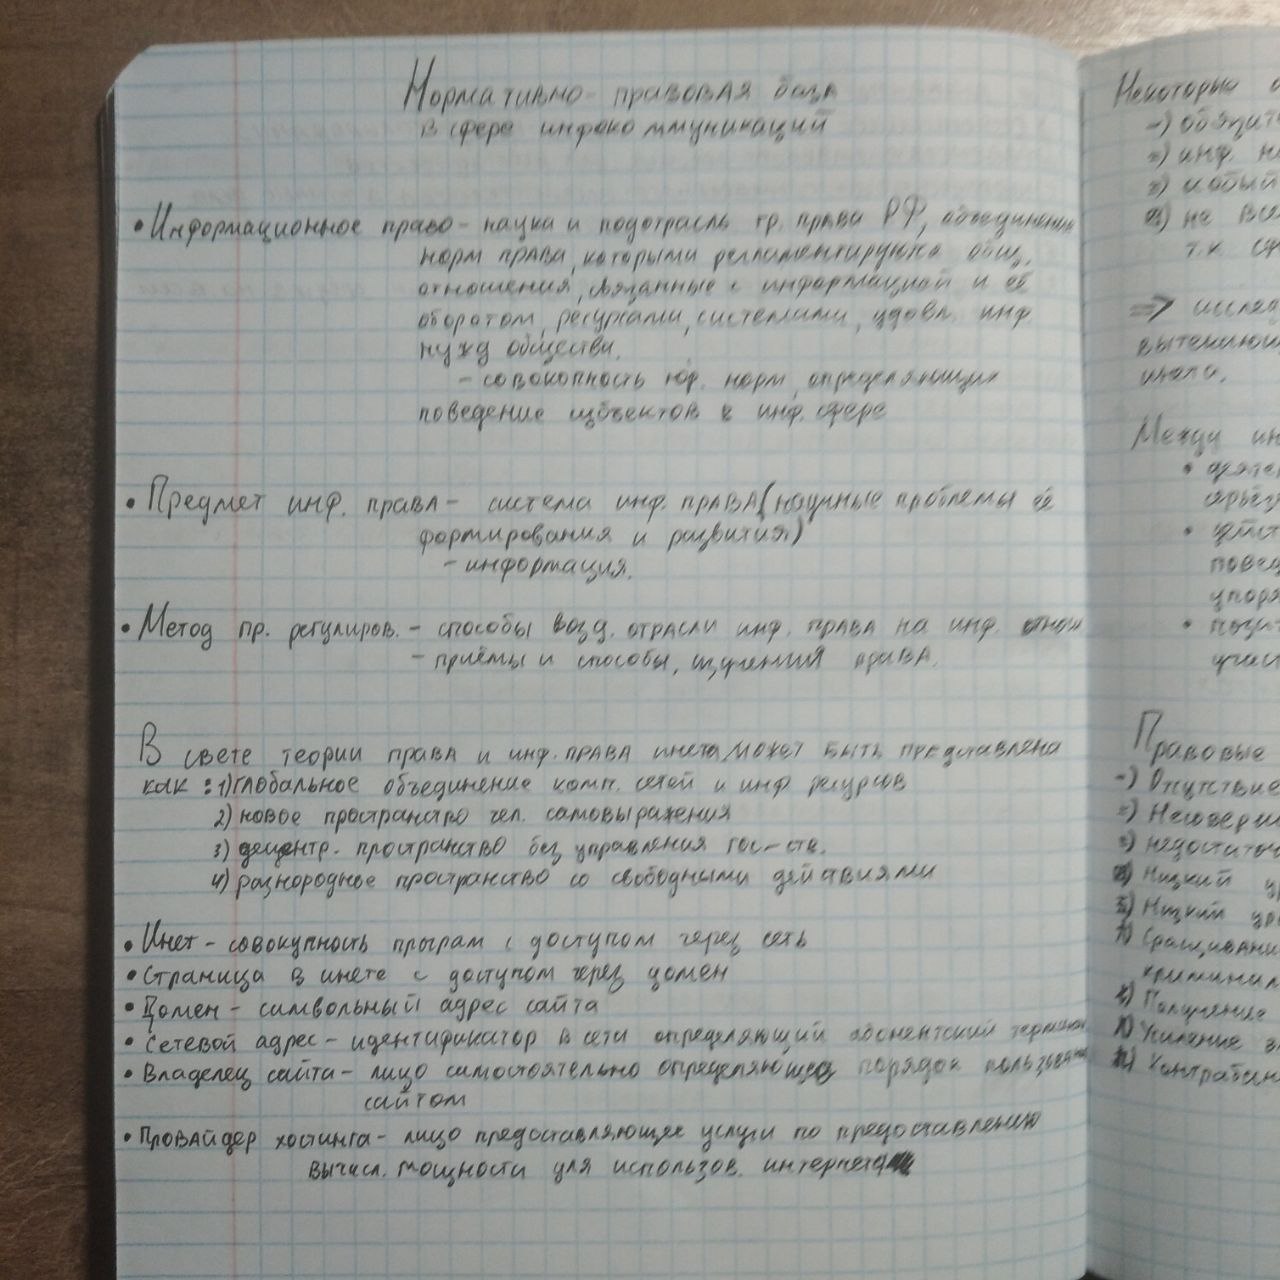 Нормативно-правовая база
в сфере инфокоммуникаций
• Информационное право - наука и подотрасль гр. права РФ, объединение
норм права, которыми регламентируются общ.
отношения, связанные с информацией и её
оборотом, ресурсами, системами, удовл. инф.
нужд общества.
- совокопность юр. норм, определяющих
поведение субъектов в инф. сфере
• Предмет инф. права - система инф. права (научные проблемы её
формирования и развития)
- информация.
• Метод пр. регулиров. - способы возд. отрасли инф. права на инф. отнош
- приёмы и способы, изучения права.
В свете теории права и инф. права инета, может быть представлена
как: 1) глобальное объединение комп. сетей и инф ресурсов
2) новое пространство чел. самовыражения
3) децентр. пространство без управления гос-ств.
4) разнородное пространство со свободными действиями
• Инет - совокупность програм с доступом через сеть
• Страница в инете с доступом через домен
• Домен - символьный адрес сайта
• Сетевой адрес - идентификатор в сети определяющий абонентский термин
• Владелец сайта - лицо самостоятельно определяющее порядок пользован
сайтом
• Провайдер хостинга - лицо предоставляющее услуги по предоставлению
вычисл. мощности для использов. интернета
Некоторые о
-) обязате
=) инф. н
т.к. с
=> исслед
вытекающ
Между ин
•
•
повед
упоря
•
учас
Правовые
-) Отсутствие
недостаточ
Низкий ур
Низкий уро
Сращивани
криминал
Получение
Усиление в
Контрабан